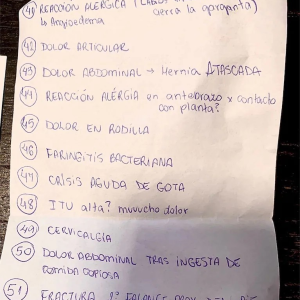 41 REACCIÓN ALÉRGICA (LABIOS
cierra la garganta)
↳ Angioedema
42 DOLOR ARTICULAR
43 DOLOR ABDOMINAL → Hernia ATASCADA
44 REACCIÓN ALÉRGIA en antebrazo x contacto
con planta?
45 DOLOR EN RODILLA
46 FARINGITIS BACTERIANA
47 CRISIS AGUDA DE GOTA
48 ITU alta? muuucho dolor
49 CERVICALGÍA
50 DOLOR ABDOMINAL TRAS INGESTA DE
COMIDA COPIOSA
51 FRACTURA FALANGE